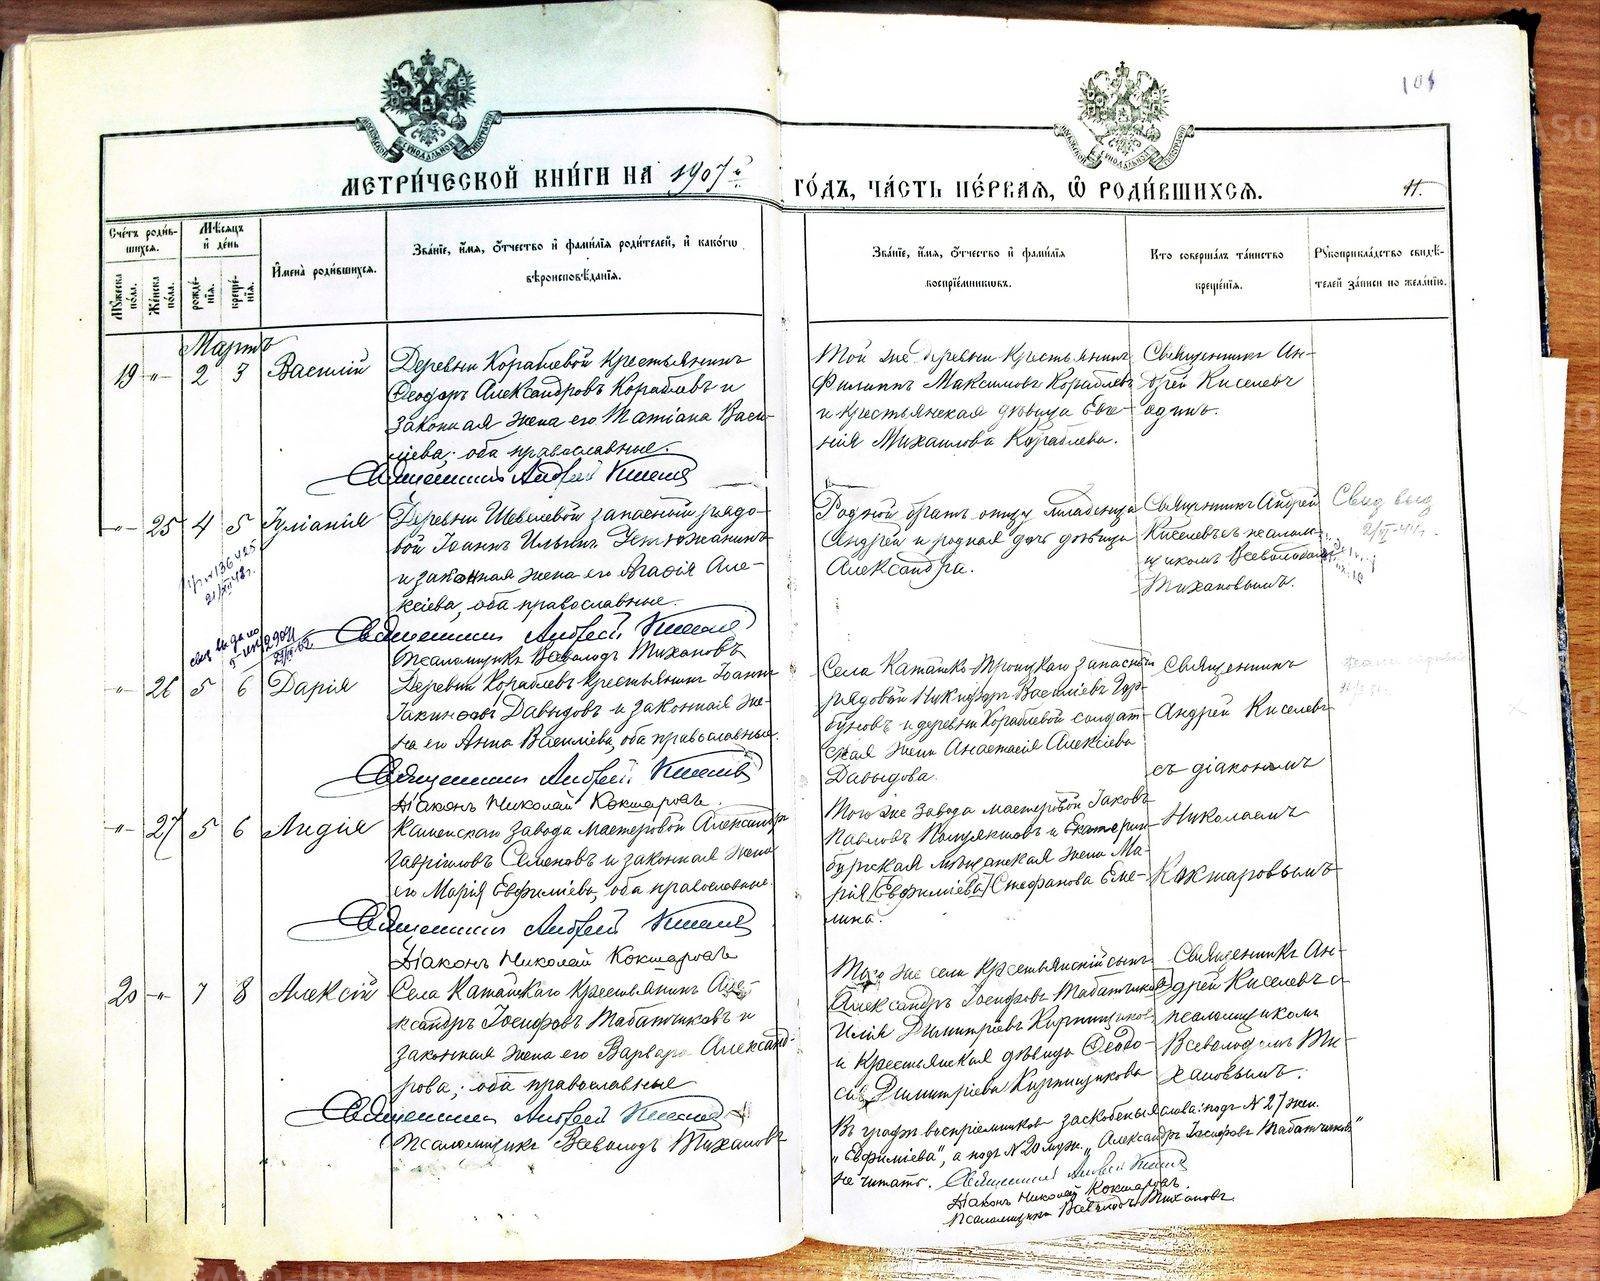 101
МЕТРИ́ЧЕСКОЙ КНИ́ГИ НА 1907й
ГО́ДЪ, ЧА́СТЬ ПЕ́РВАЯ, Ѽ РОДИ́ВШИХСЯ.
11.
Сче́тъ роди́в-
шихся.
Мѣ́сяцъ
и҆ де́нь
И҆мена̀ роди́вшихся.
Зва́нїе, и҆́мя, ѻ҆́тчество и҆ фамѝлїя роди́телей, и҆ како́гѡ
вѣроисповѣ́данїя.
Му́жеска
по́ла.
Же́нска
по́ла.
рожде́-
нїя.
креще́-
нїя.
Зва́нїе, и҆́мя, ѻ҆́тчество и҆ фамѝлїя
воспрїе́мниковъ.
Кто соверша́лъ та́инство
креще́нїя.
Рукоприкла́дство свидѣ́-
телей за́писи по жела́нїю.
Мартъ
19 -"- 2 3 Василій
Деревни Кораблевой крестьянинъ
Ѳеодоръ Александровъ Кораблевъ и
законная жена его Татіана Васи-
ліева, оба православные.
Священникъ Андрей Киселевъ
Той же деревни крестьянинъ
Филиппъ Максимовъ Кораблевъ
и крестьянская дѣвица Евге-
нія Михаилова Кораблева.
Священникъ Ан-
дрей Киселевъ
одинъ.
-"- 25 4 5 Іуліанія
Деревни Шевелевой запасный рядо-
вой Іоаннъ Ильинъ Устюжанинъ
и законная жена его Агафія Але-
ксіева, оба православные.
Священникъ Андрей Киселевъ
Псаломщикъ Всеволодъ Тихановъ
Родной братъ отцу младенца
Андрей и родная дочь дѣвица
Александра.
Священникъ Андрей
Киселевъ съ псалом-
щикомъ Всеволодомъ
Тихановымъ.
Свид выд
2/VI-44г.
-"- 26 5 6 Дарія
Деревни Кораблевъ крестьянинъ Іоаннъ
Іакинѳовъ Давыдовъ и законная же-
на его Анна Василіева, оба православные.
Священникъ Андрей Киселевъ
Діаконъ Николай Кокшаровъ.
Села Катайскъ-Троицкаго запасный
рядовой Никифоръ Василіевъ Гор-
буновъ и деревни Кораблевой солдат-
ская жена Анастасія Алексіева
Давыдова.
Священникъ
Андрей Киселевъ
съ діакономъ
-"- 27 5 6 Лидія
Каменскаго завода мастеровой Александръ
Гавріиловъ Семеновъ и законная жена
его Марія Евфиміева, оба православные.
Священникъ Андрей Киселевъ
Діаконъ Николай Кокшаровъ
Того же завода мастеровой Іаковъ
Павловъ и Екатерин-
бургская мѣщанская жена Ма-
рія [Евфиміева] Стефанова Еме-
лина.
Николаемъ
Кокшаровымъ
20 -"- 7 8 Алексій
Села Катайскаго крестьянинъ Але-
ксандръ Іосифовъ Табатчиковъ и
законная жена его Варвара Александ-
рова, оба православные
Священникъ Андрей Киселевъ
Псаломщикъ Всеволодъ Тихановъ
Того же села крестьянскій сынъ
[Александръ Іосифовъ Табатчиковъ]
Илія Димитріевъ Кирпищиковъ
и крестьянская дѣвица Ѳеодо-
сія Димитріева Кирпищикова
Священникъ Ан-
дрей Киселевъ съ
псаломщикомъ
Всеволодомъ Ти-
хановымъ.
Въ графѣ воспріемниковъ заскобенныя слова: подъ N 27 жен.
„Евфиміева", а подъ N 20 муж. „Александръ Іосифовъ Табатчиковъ"
не читать. Священникъ Андрей Киселевъ
Діаконъ Николай Кокшаровъ.
Псаломщикъ Всеволодъ Тихановъ.